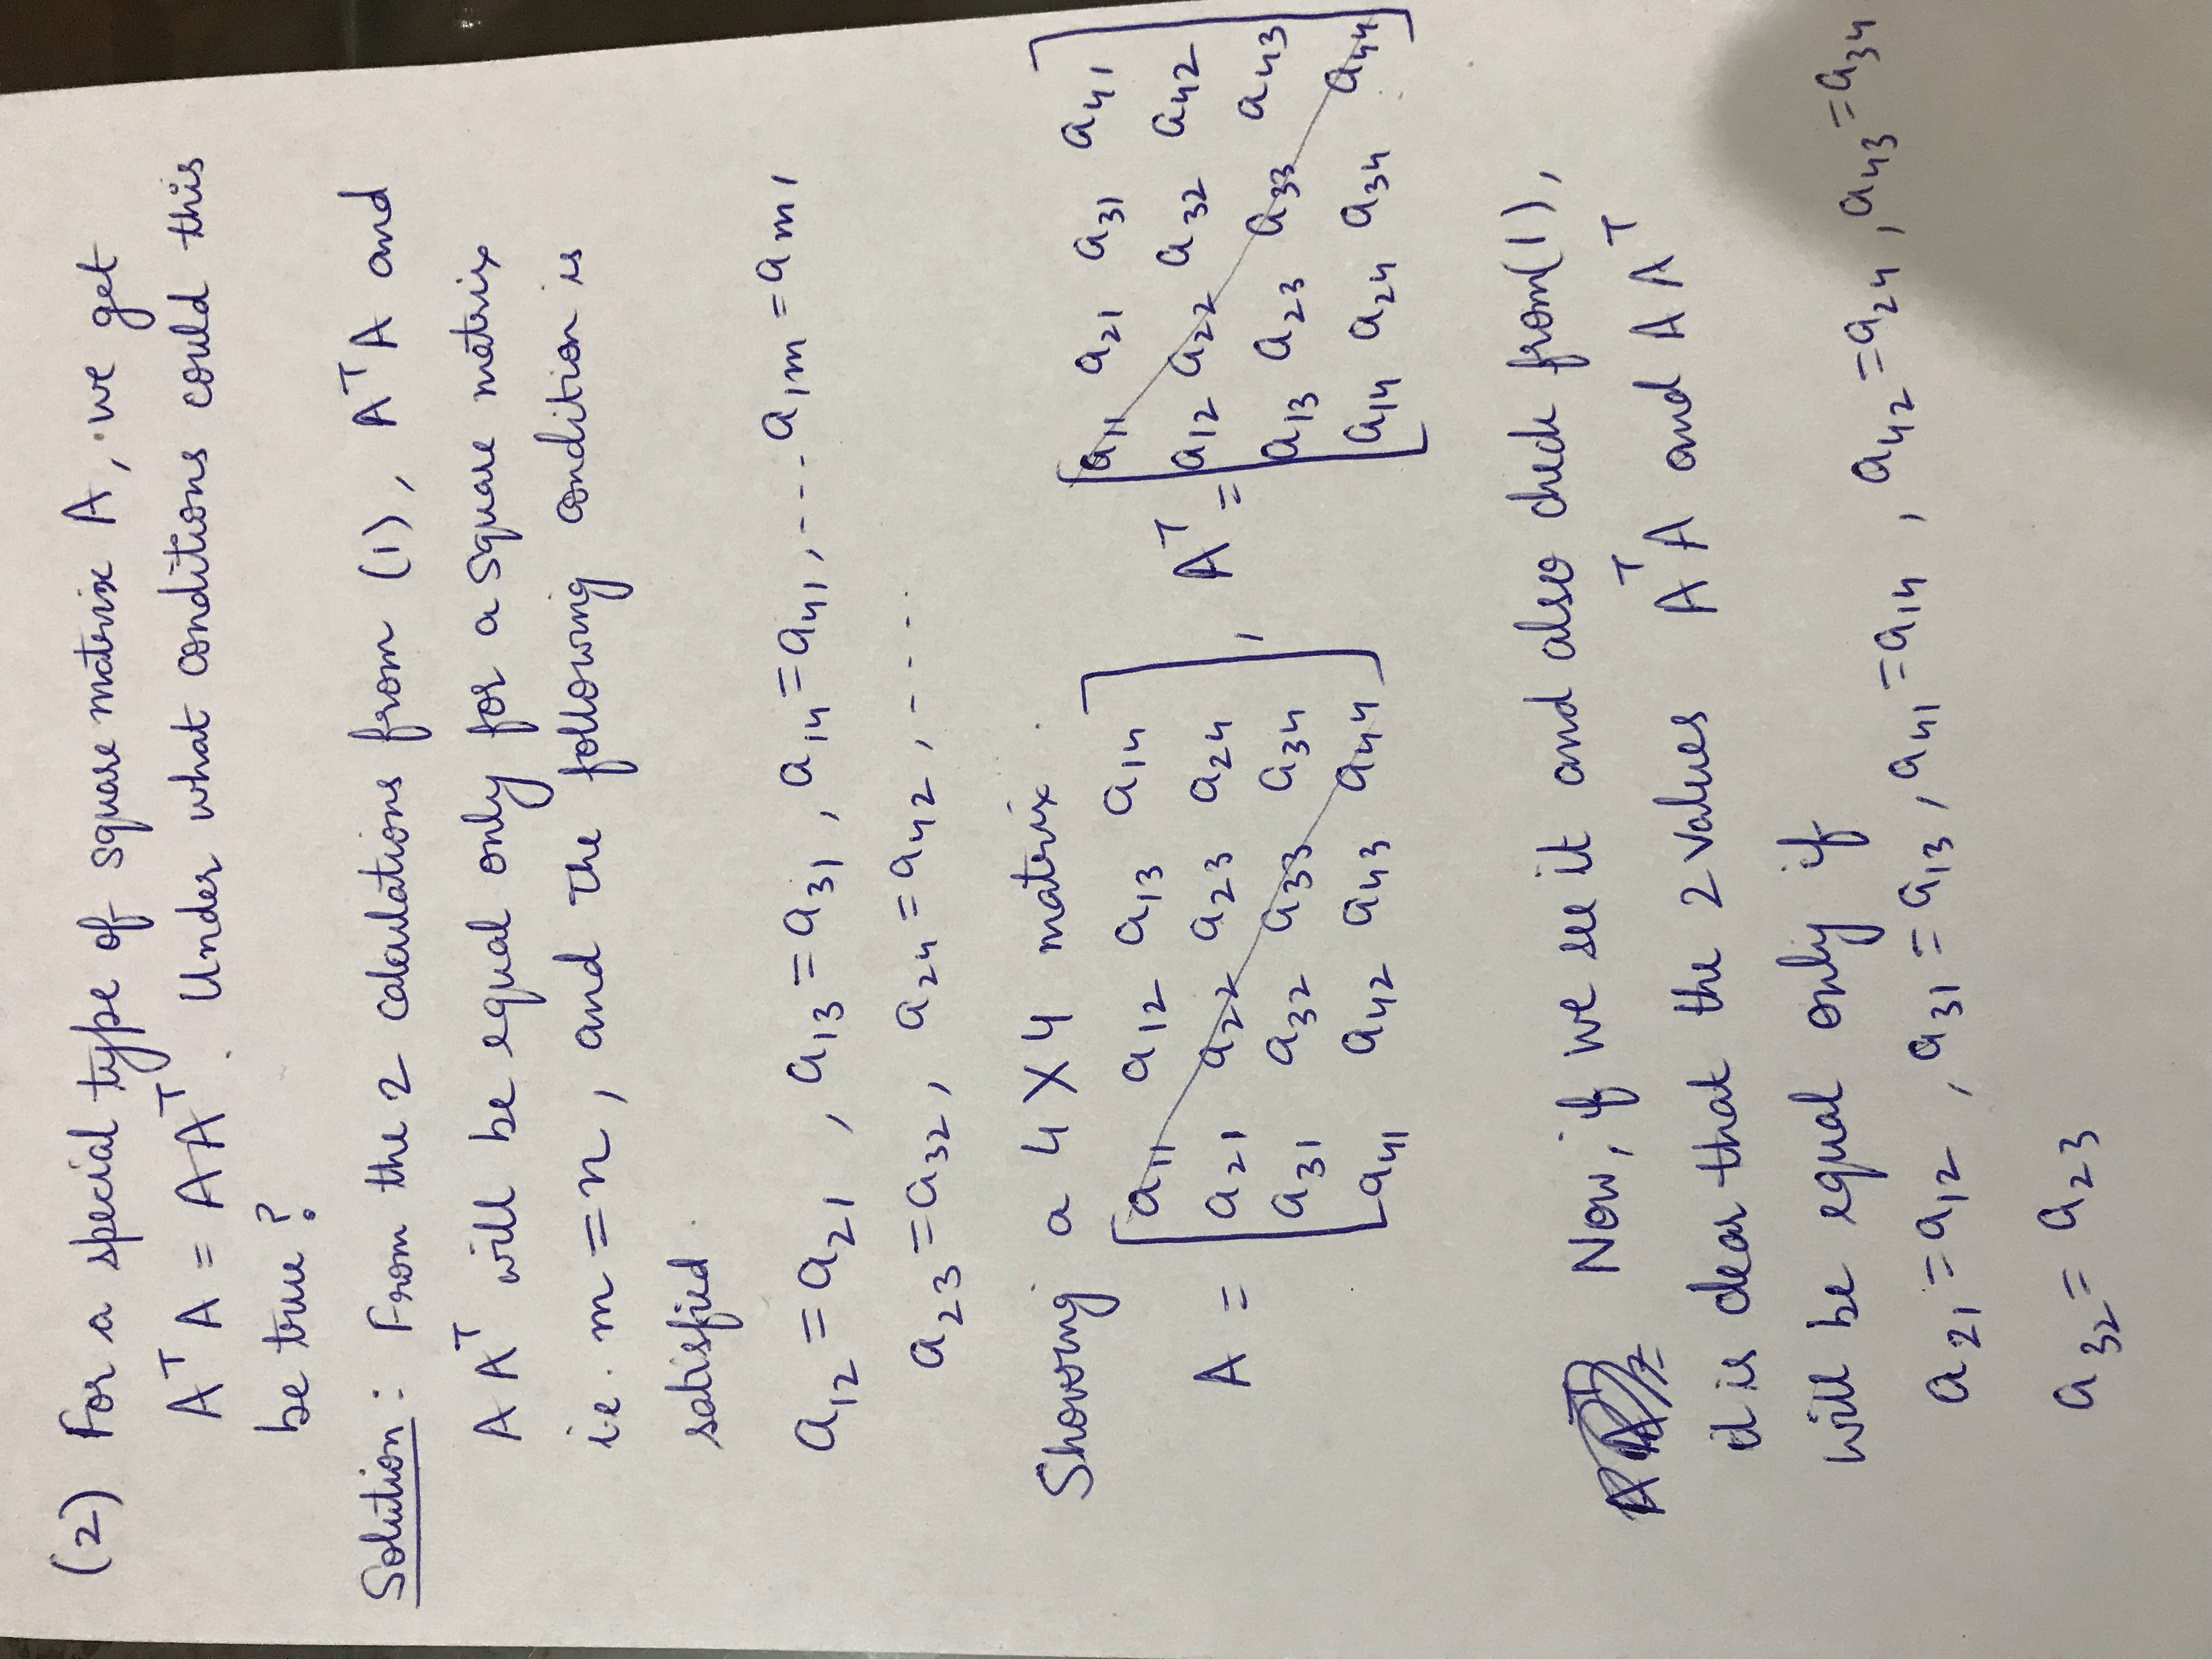 (2) For a special type of square matrix A, we get
AᵀA = AAᵀ. Under what conditions could this
be true?
Solution: From the 2 calculations from (1), AᵀA and
AAᵀ will be equal only for a square matrix
i.e. m = n, and the following condition is
satisfied.
a₁₂ = a₂₁ , a₁₃ = a₃₁ , a₁₄ = a₄₁ , --- a₁ₘ = aₘ₁
a₂₃ = a₃₂ , a₂₄ = a₄₂ , ----
Showing a 4 X 4 matrix.
A = [ a₁₁ a₁₂ a₁₃ a₁₄
a₂₁ a₂₂ a₂₃ a₂₄
a₃₁ a₃₂ a₃₃ a₃₄
a₄₁ a₄₂ a₄₃ a₄₄ ] ,
Aᵀ = [ a₁₁ a₂₁ a₃₁ a₄₁
a₁₂ a₂₂ a₃₂ a₄₂
a₁₃ a₂₃ a₃₃ a₄₃
a₁₄ a₂₄ a₃₄ a₄₄ ]
Now, if we see it and also check from (1),
it is clear that the 2 values AᵀA and AAᵀ
will be equal only if
a₂₁ = a₁₂ , a₃₁ = a₁₃ , a₄₁ = a₁₄ , a₄₂ = a₂₄ , a₄₃ = a₃₄
a₃₂ = a₂₃